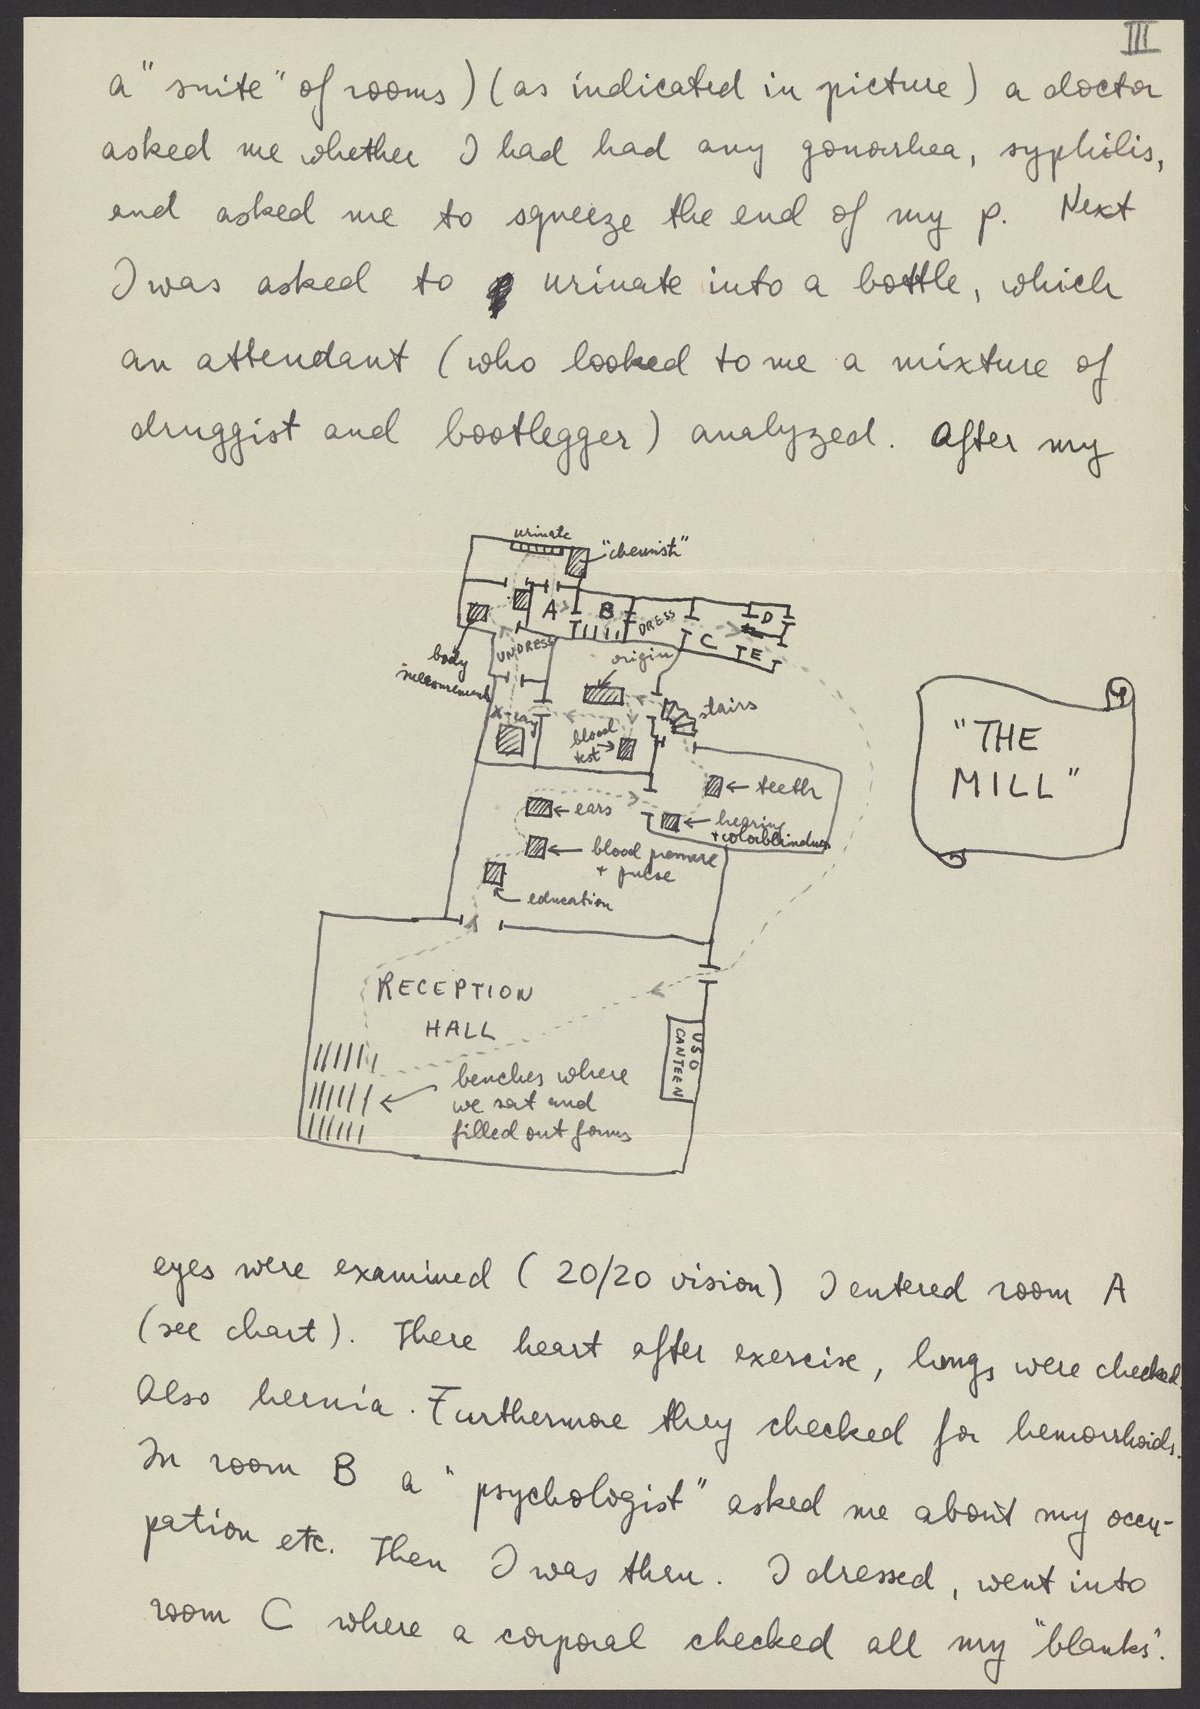 III
a "suite" of rooms) (as indicated in picture) a doctor
asked me whether I had had any gonorrhea, syphilis,
and asked me to squeeze the end of my p. Next
I was asked to urinate into a bottle, which
an attendant (who looked to me a mixture of
druggist and bootlegger) analyzed. After my
urinate
"chemist"
A
B
DRESS
C
D
E
body
measurement
UNDRESS
origin
X-ray
blood
test
stairs
teeth
ears
hearing
+ colorblindness
blood pressure
+ pulse
education
"THE
MILL"
RECEPTION
HALL
USO
CANTEEN
benches where
we sat and
filled out forms
eyes were examined (20/20 vision) I entered room A
(see chart). There heart after exercise, lungs were checked.
Also hernia. Furthermore they checked for hemorrhoids.
In room B a "psychologist" asked me about my occu-
pation etc. Then I was thru. I dressed, went into
room C where a corporal checked all my "blanks".